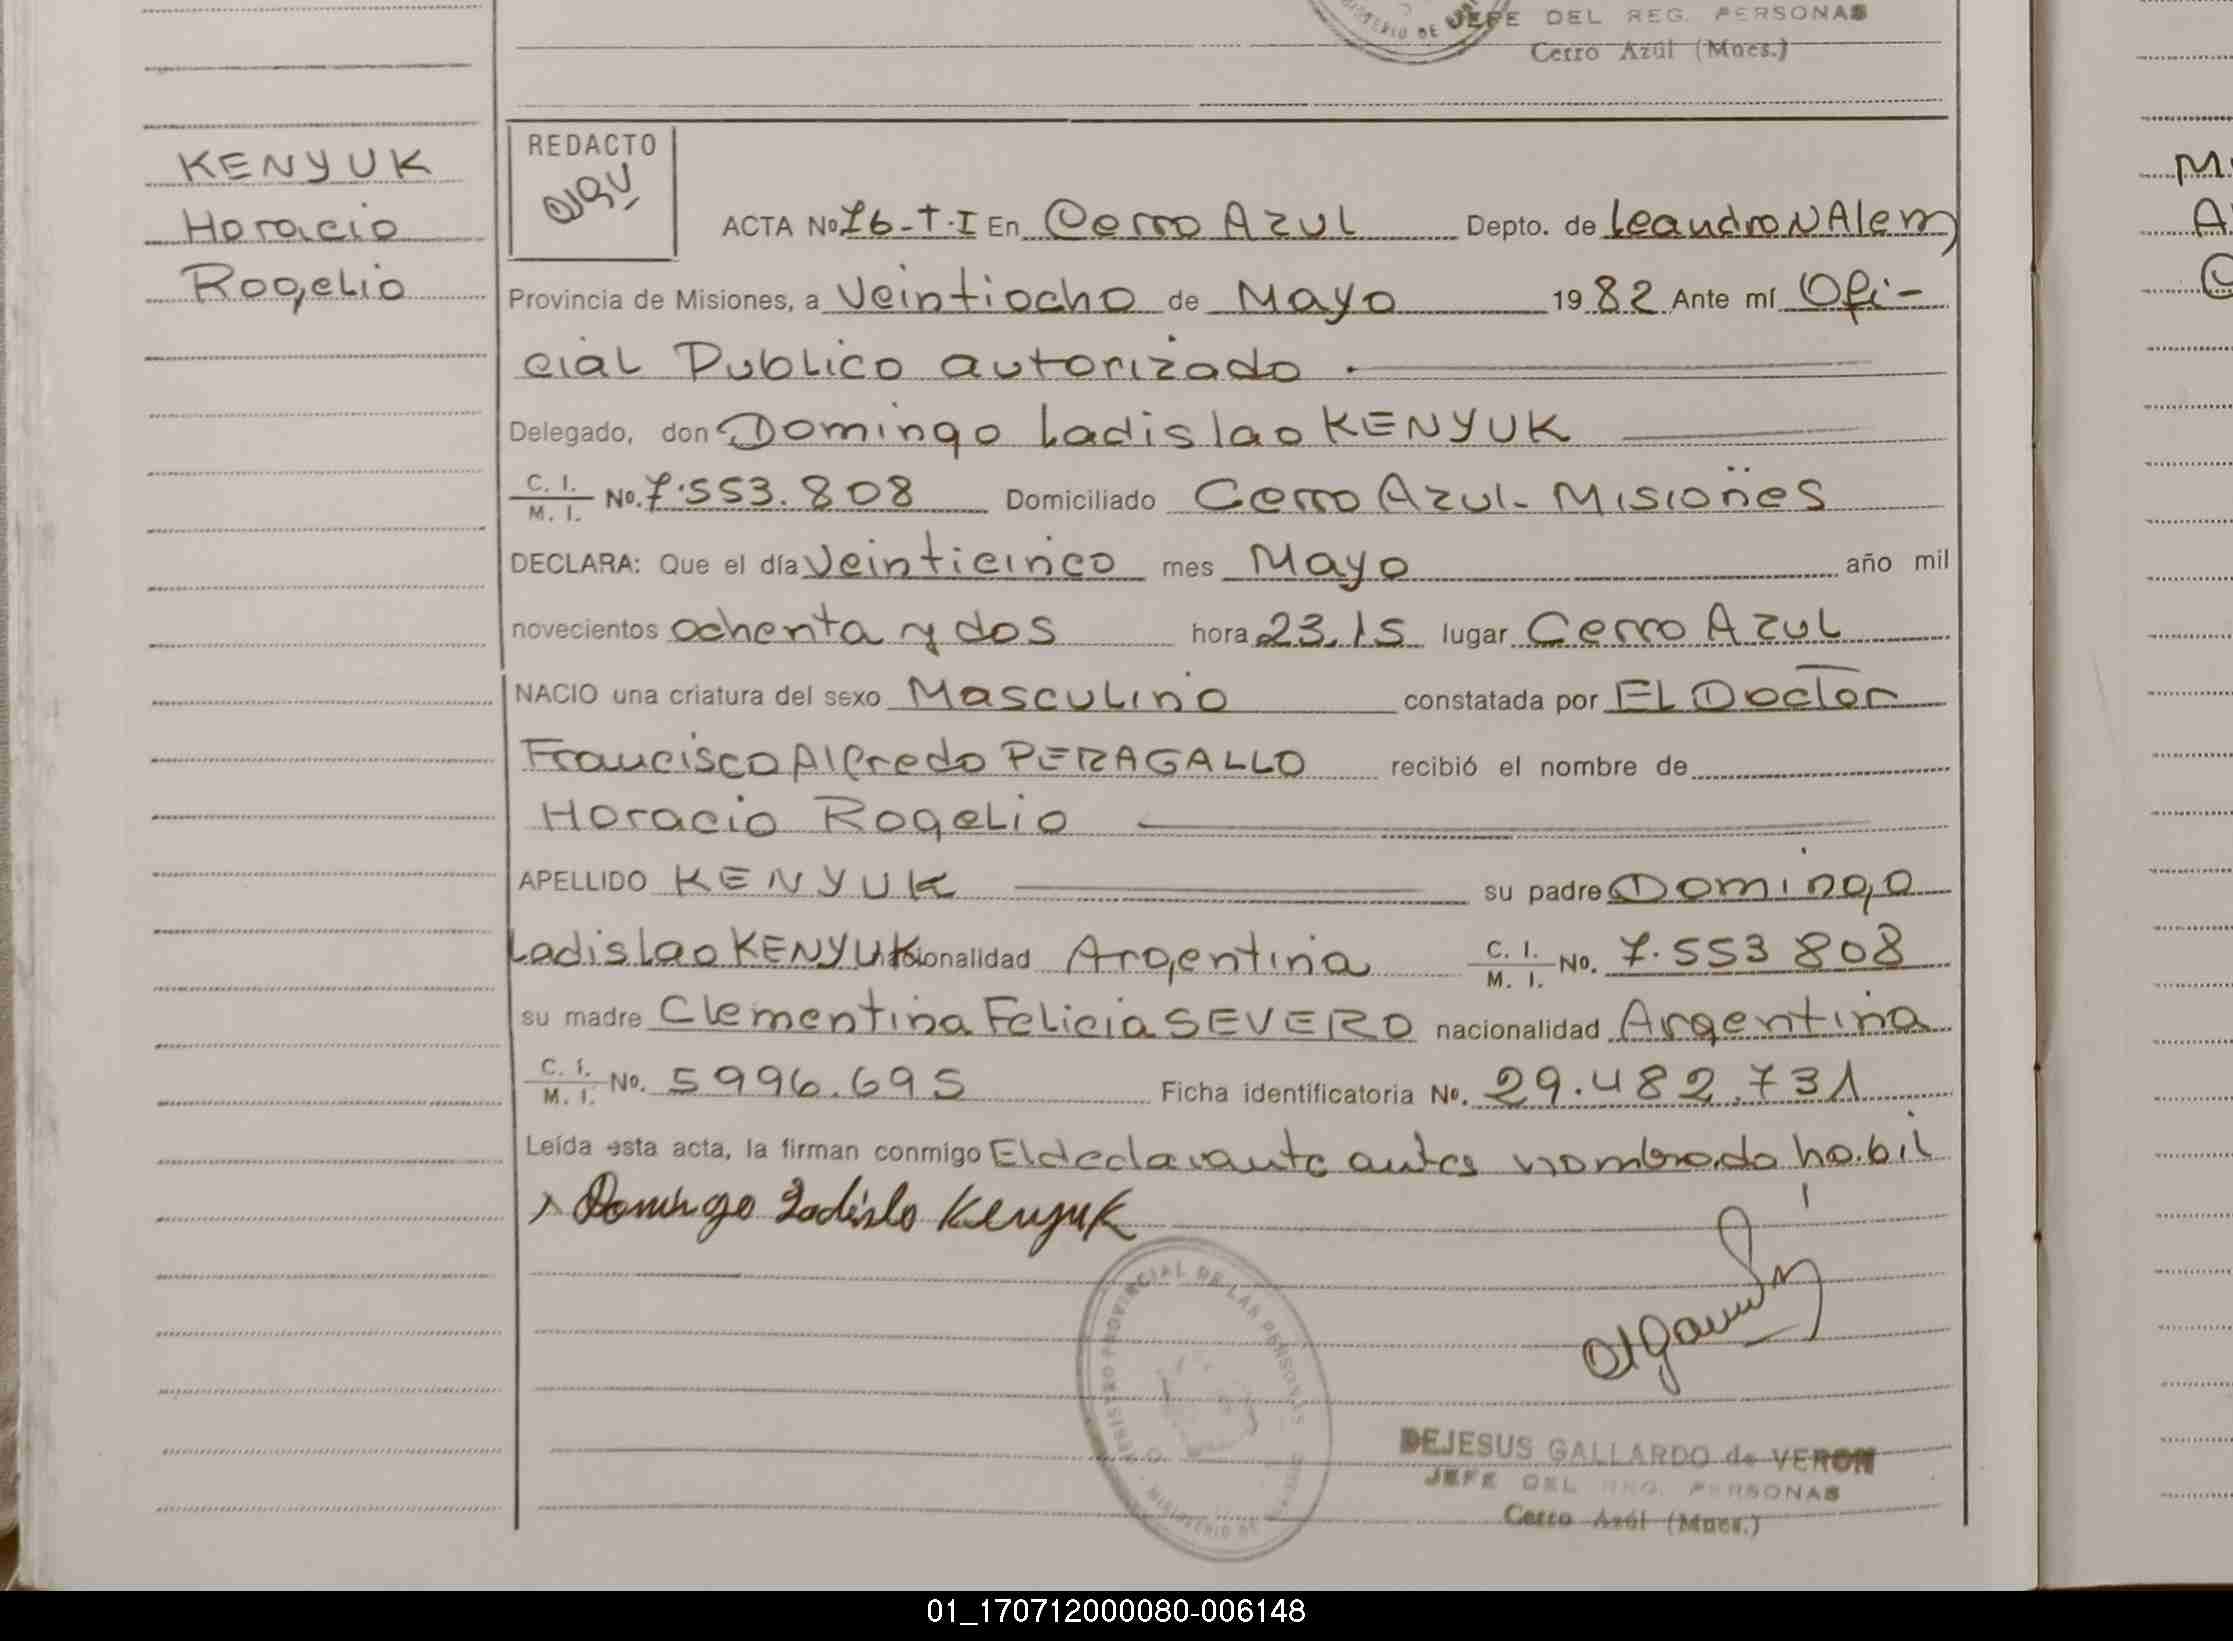 JEFE DEL REG. PERSONAS
Cerro Azúl (Mnes.)
KENYUK
Horacio
Rogelio
REDACTO
ACTA No 76-T.I En Cerro Azul Depto. de Leandro N Alem
Provincia de Misiones, a Veintiocho de Mayo 1982 Ante mí Ofi-
cial Publico autorizado.
Delegado, don Domingo Ladislao KENYUK
C. I. M. I. No. 7.553.808 Domiciliado Cerro Azul - Misiones
DECLARA: Que el día Veinticinco mes Mayo año mil
novecientos ochenta y dos hora 23.15 lugar Cerro Azul
NACIO una criatura del sexo Masculino constatada por EL Doctor
Francisco Alfredo PERAGALLO recibió el nombre de
Horacio Rogelio
APELLIDO KENYUK su padre Domingo
Ladislao KENYUK cionalidad Argentina C. I. M. I. No. 7.553 808
su madre Clementina Felicia SEVERO nacionalidad Argentina
C. I. M. I. No. 5996.695 Ficha identificatoria No. 29.482.731
Leída esta acta, la firman conmigo El declarante antes nombrado habil
Domingo Ladislo Kenyuk
REGISTRO PROVINCIAL DE LAS PERSONAS
MINISTERIO DE
DEJESUS GALLARDO de VERON
JEFE DEL REG. PERSONAS
Cerro Azúl (Mnes.)
01_170712000080-006148